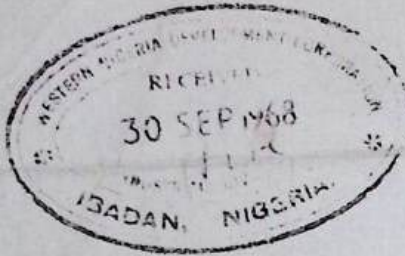 WESTERN NIGERIA DEVELOPMENT CORPORATION
RECEIVED
30 SEP 1968
IBADAN, NIGERIA.